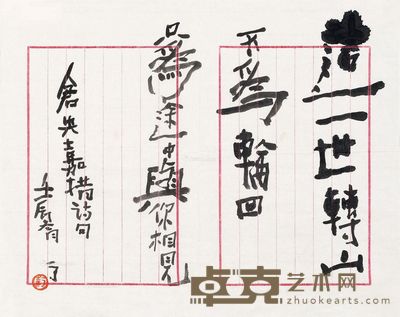 一世轉山
不為輪回
只為途中與你相見
倉央嘉措詩句
壬辰
卓克艺术网
zhuokearts.com